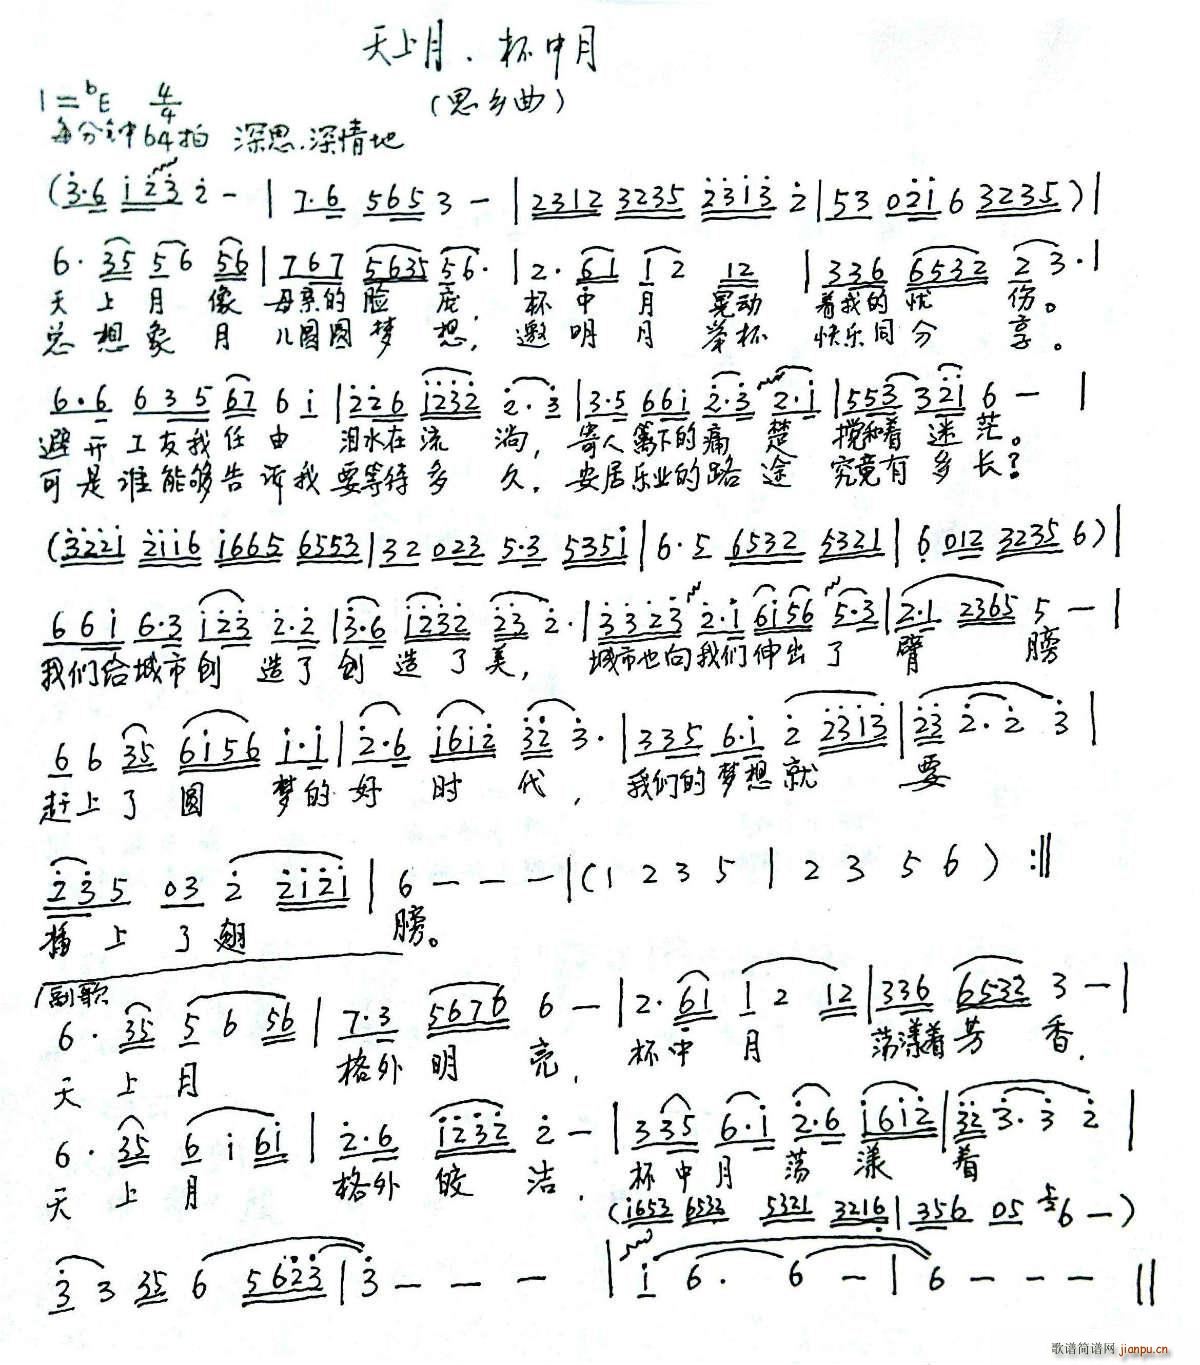 天上月·杯中月
(思乡曲)
1=bE 4/4
每分钟64拍 深思、深情地
(3·6 123 2 - | 7·6 565 3 - | 2312 3235 2313 2 | 53 021 6 3235) |
6· 35 56 56 | 767 5635 56· | 2· 61 12 12 | 336 6532 23· |
天上月像母亲的脸庞,杯中月晃动着我的忧伤。
总想象月儿圆圆梦想,邀明月举杯快乐同分享。
6·6 635 67 6i | 226 1232 2·3 | 3·5 661 2·3 2·1 | 553 321 6 - |
避开工友我任由泪水在流淌,寄人篱下的痛楚搅和着迷茫。
可是谁能够告诉我要等待多久,安居乐业的路途究竟有多长?
(3221 2116 1665 6553 | 32 023 5·3 5351 | 6·5 6532 5321 | 6 012 3235 6) |
661 6·3 123 2·2 | 3·6 1232 23 2· | 3323 2·1 6156 5·3 | 2·1 2365 5 - |
我们给城市创造了创造了美,城市也向我们伸出了臂膀
66 35 6156 1·1 | 2·6 1612 32 3· | 335 6·1 2 2313 | 23 2·2 3 |
赶上了圆梦的好时代,我们的梦想就要
235 03 2 2121 | 6 - - - | (1 2 3 5 | 2 3 5 6) :||
插上了翅膀。
副歌
6· 35 5 6 56 | 7·3 5676 6 - | 2· 61 1 2 12 | 336 6532 3 - |
天上月格外明亮,杯中月荡漾着芳香,
6· 35 6 1 61 | 2·6 1232 2 - | 335 6·1 2·6 1612 | 32 3·3 2 |
天上月格外皎洁,杯中月荡漾着
(1653 6533 5321 3216 | 356 05 56 -)
3 3 35 6 5623 | 3 - - - | 1 6· 6 - | 6 - - - ||
歌谱简谱网 jianpu.cn